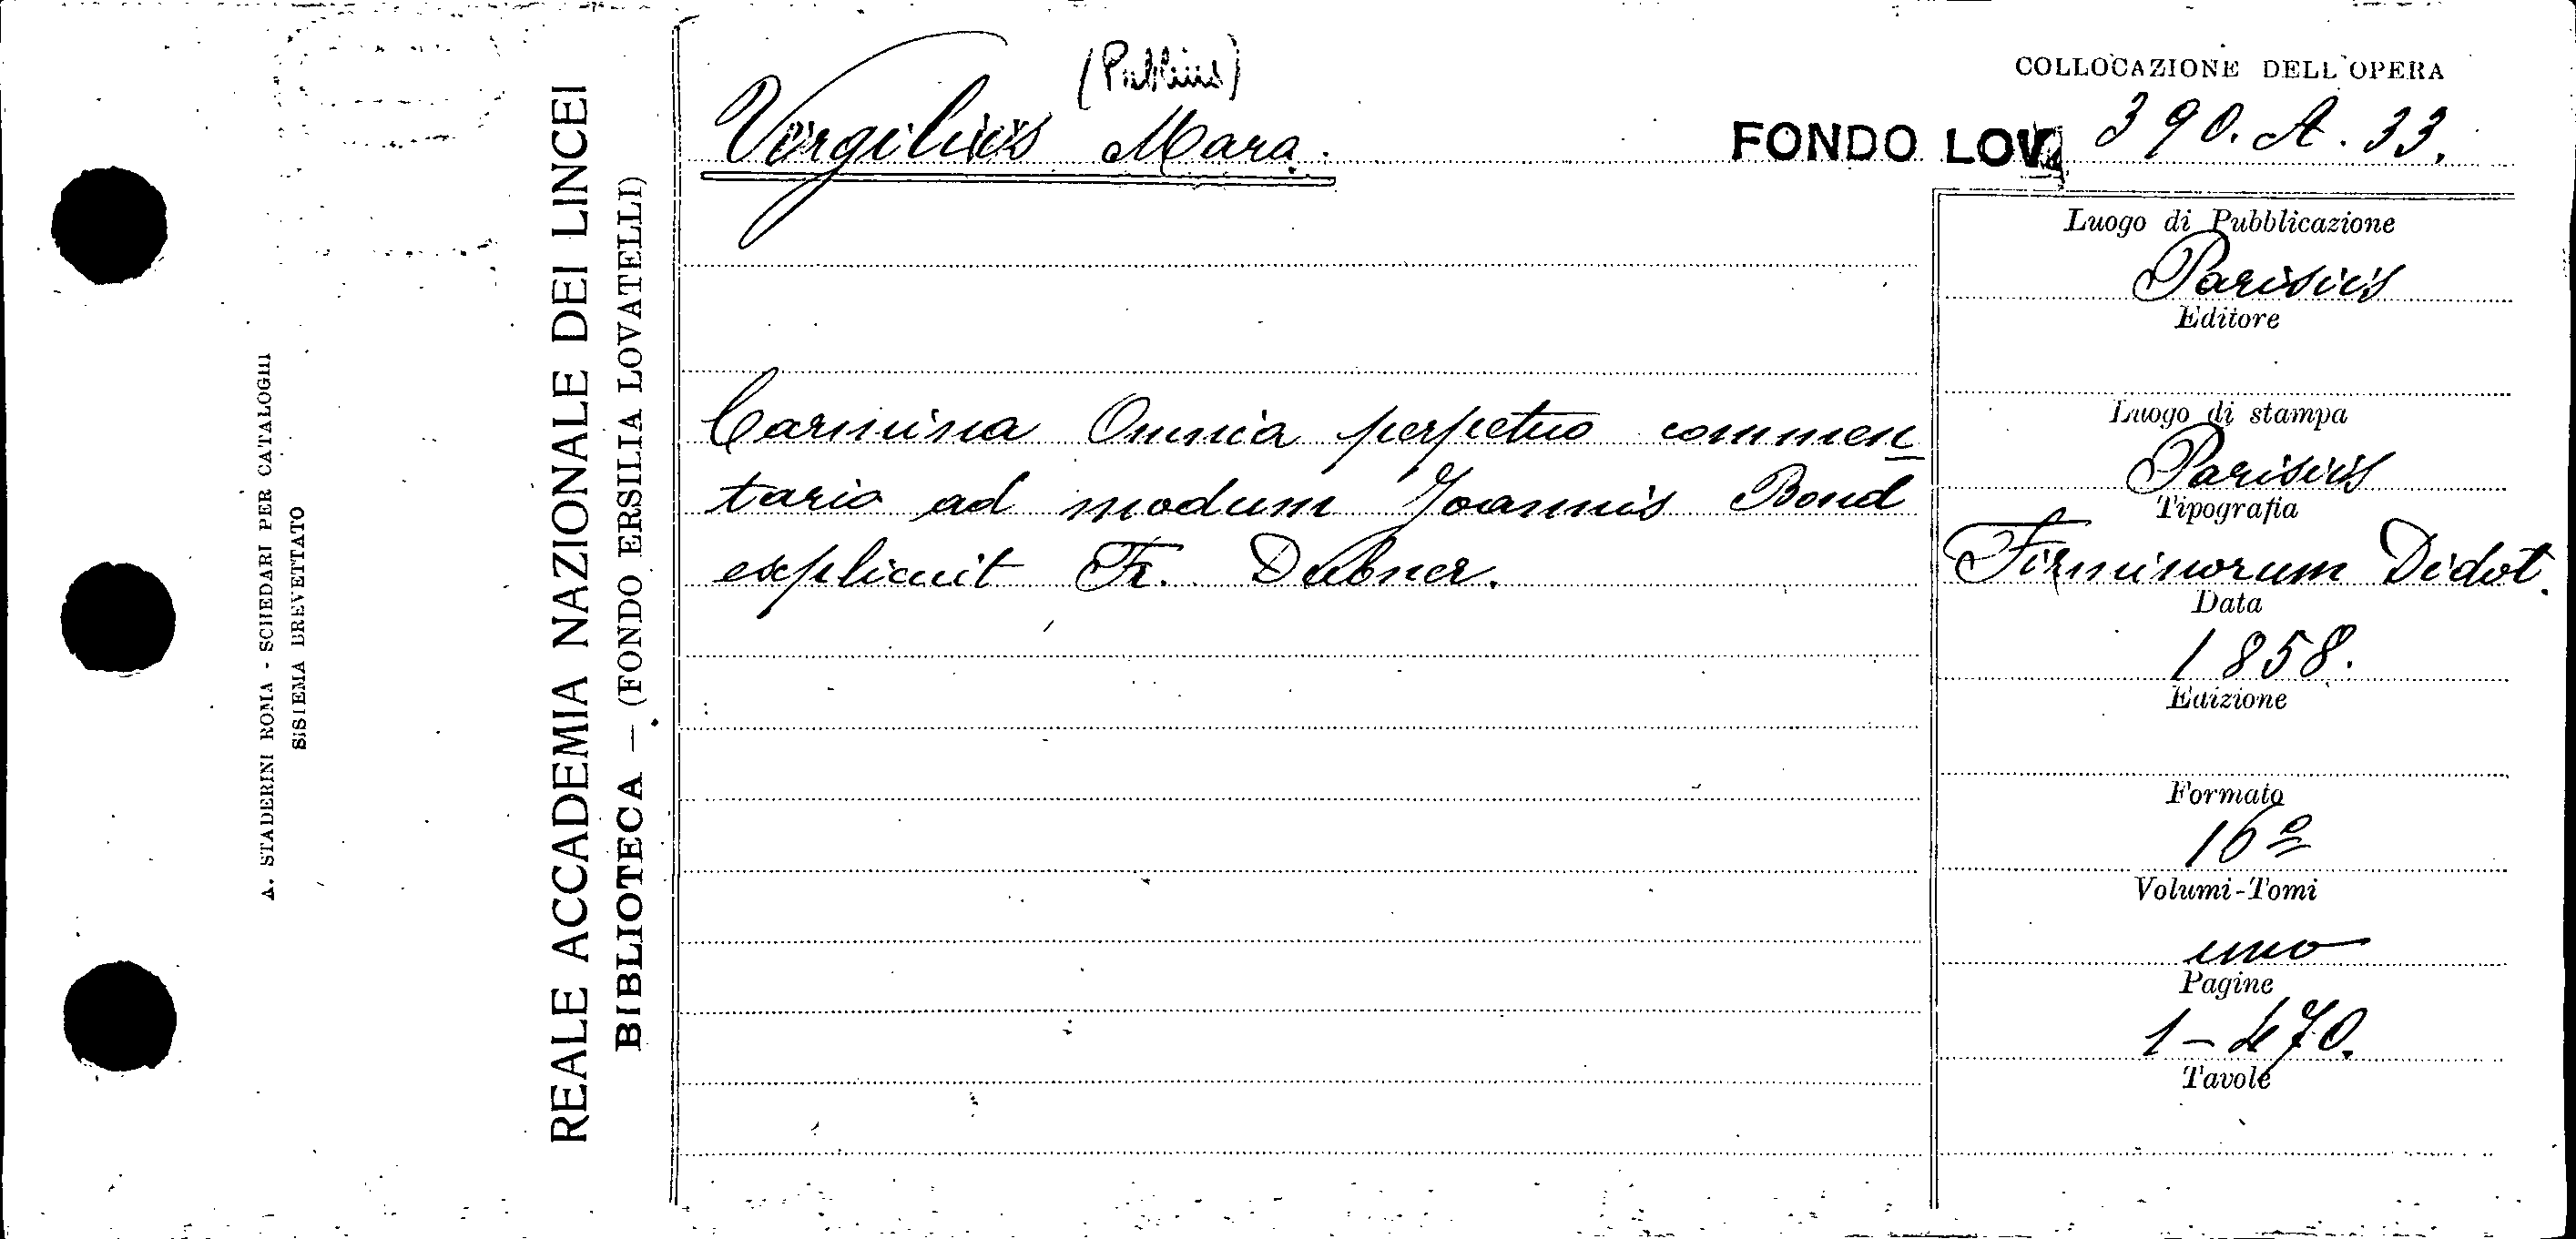 A. STADERINI ROMA - SCHEDARI PER CATALOGHI
SISTEMA BREVETTATO
REALE ACCADEMIA NAZIONALE DEI LINCEI
BIBLIOTECA — (FONDO ERSILIA LOVATELLI)
(Publius)
Virgilius Mara.
Carmina Omnia perpetuo commen
tario ad modum Joannis Bond
explicuit Fr. Dubner.
COLLOCAZIONE DELL'OPERA
FONDO LOV. 390. A. 33.
Luogo di Pubblicazione
Parisiis
Editore
Luogo di stampa
Parisiis
Tipografia
Firminorum Didot.
Data
1858.
Edizione
Formato
16º
Volumi-Tomi
uno
Pagine
1-470.
Tavole